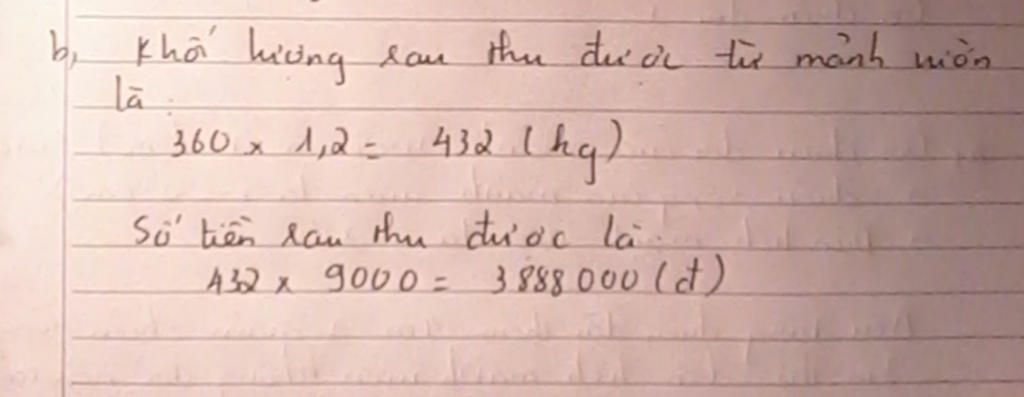 b, Khối lượng rau thu được từ mảnh vườn
là
360 x 1,2 = 432 (kg)
Số tiền rau thu được là
432 x 9000 = 3888000 (đ)